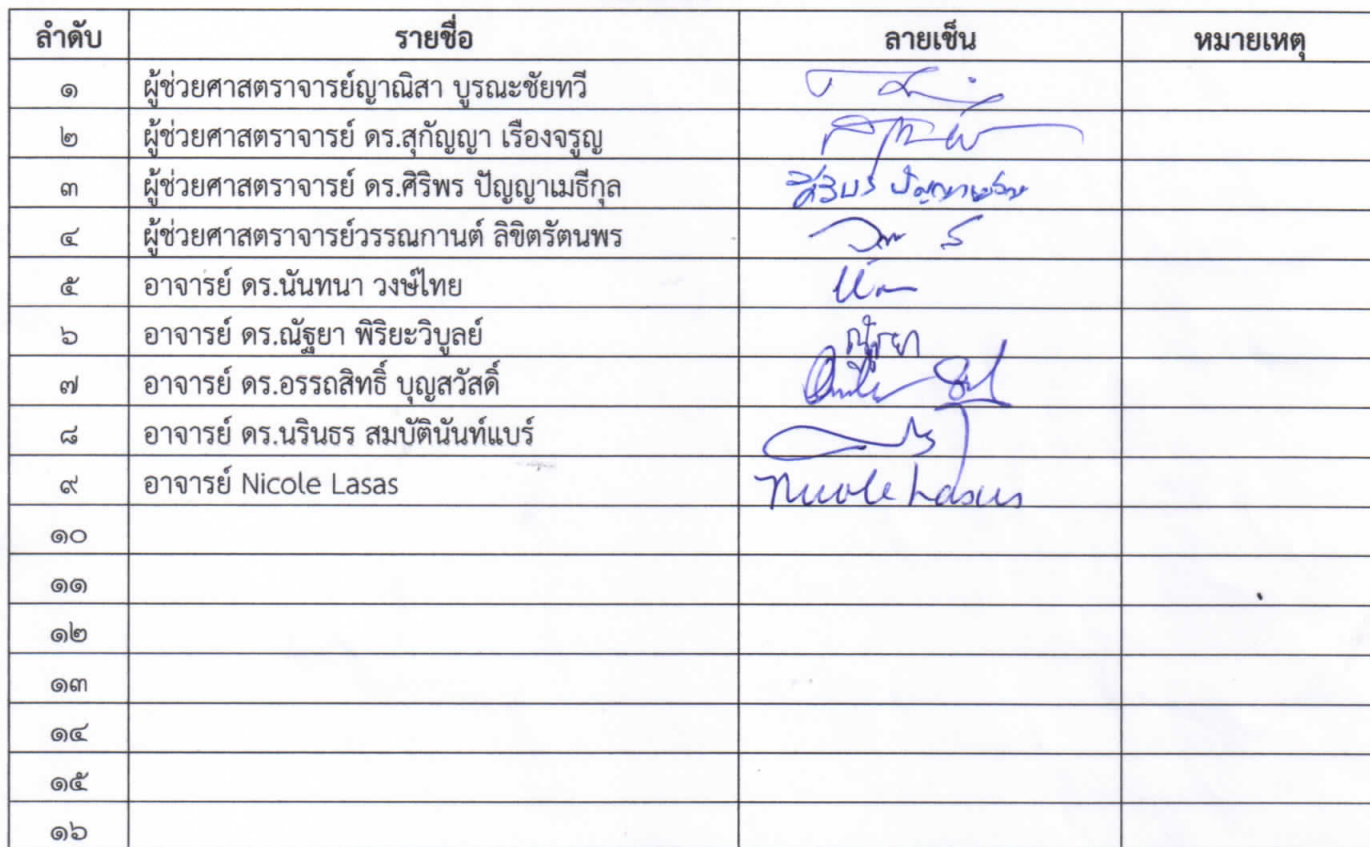 ลำดับ รายชื่อ ลายเซ็น หมายเหตุ
๑ ผู้ช่วยศาสตราจารย์ญาณิสา บูรณะชัยทวี
๒ ผู้ช่วยศาสตราจารย์ ดร.สุกัญญา เรืองจรูญ
๓ ผู้ช่วยศาสตราจารย์ ดร.ศิริพร ปัญญาเมธีกุล ศิริพร
๔ ผู้ช่วยศาสตราจารย์วรรณกานต์ ลิขิตรัตนพร
๕ อาจารย์ ดร.นันทนา วงษ์ไทย
๖ อาจารย์ ดร.ณัฐยา พิริยะวิบูลย์ ณัฐยา
๗ อาจารย์ ดร.อรรถสิทธิ์ บุญสวัสดิ์
๘ อาจารย์ ดร.นรินธร สมบัตินันท์แบร์
๙ อาจารย์ Nicole Lasas Nicole Lasas
๑๐
๑๑
๑๒
๑๓
๑๔
๑๕
๑๖